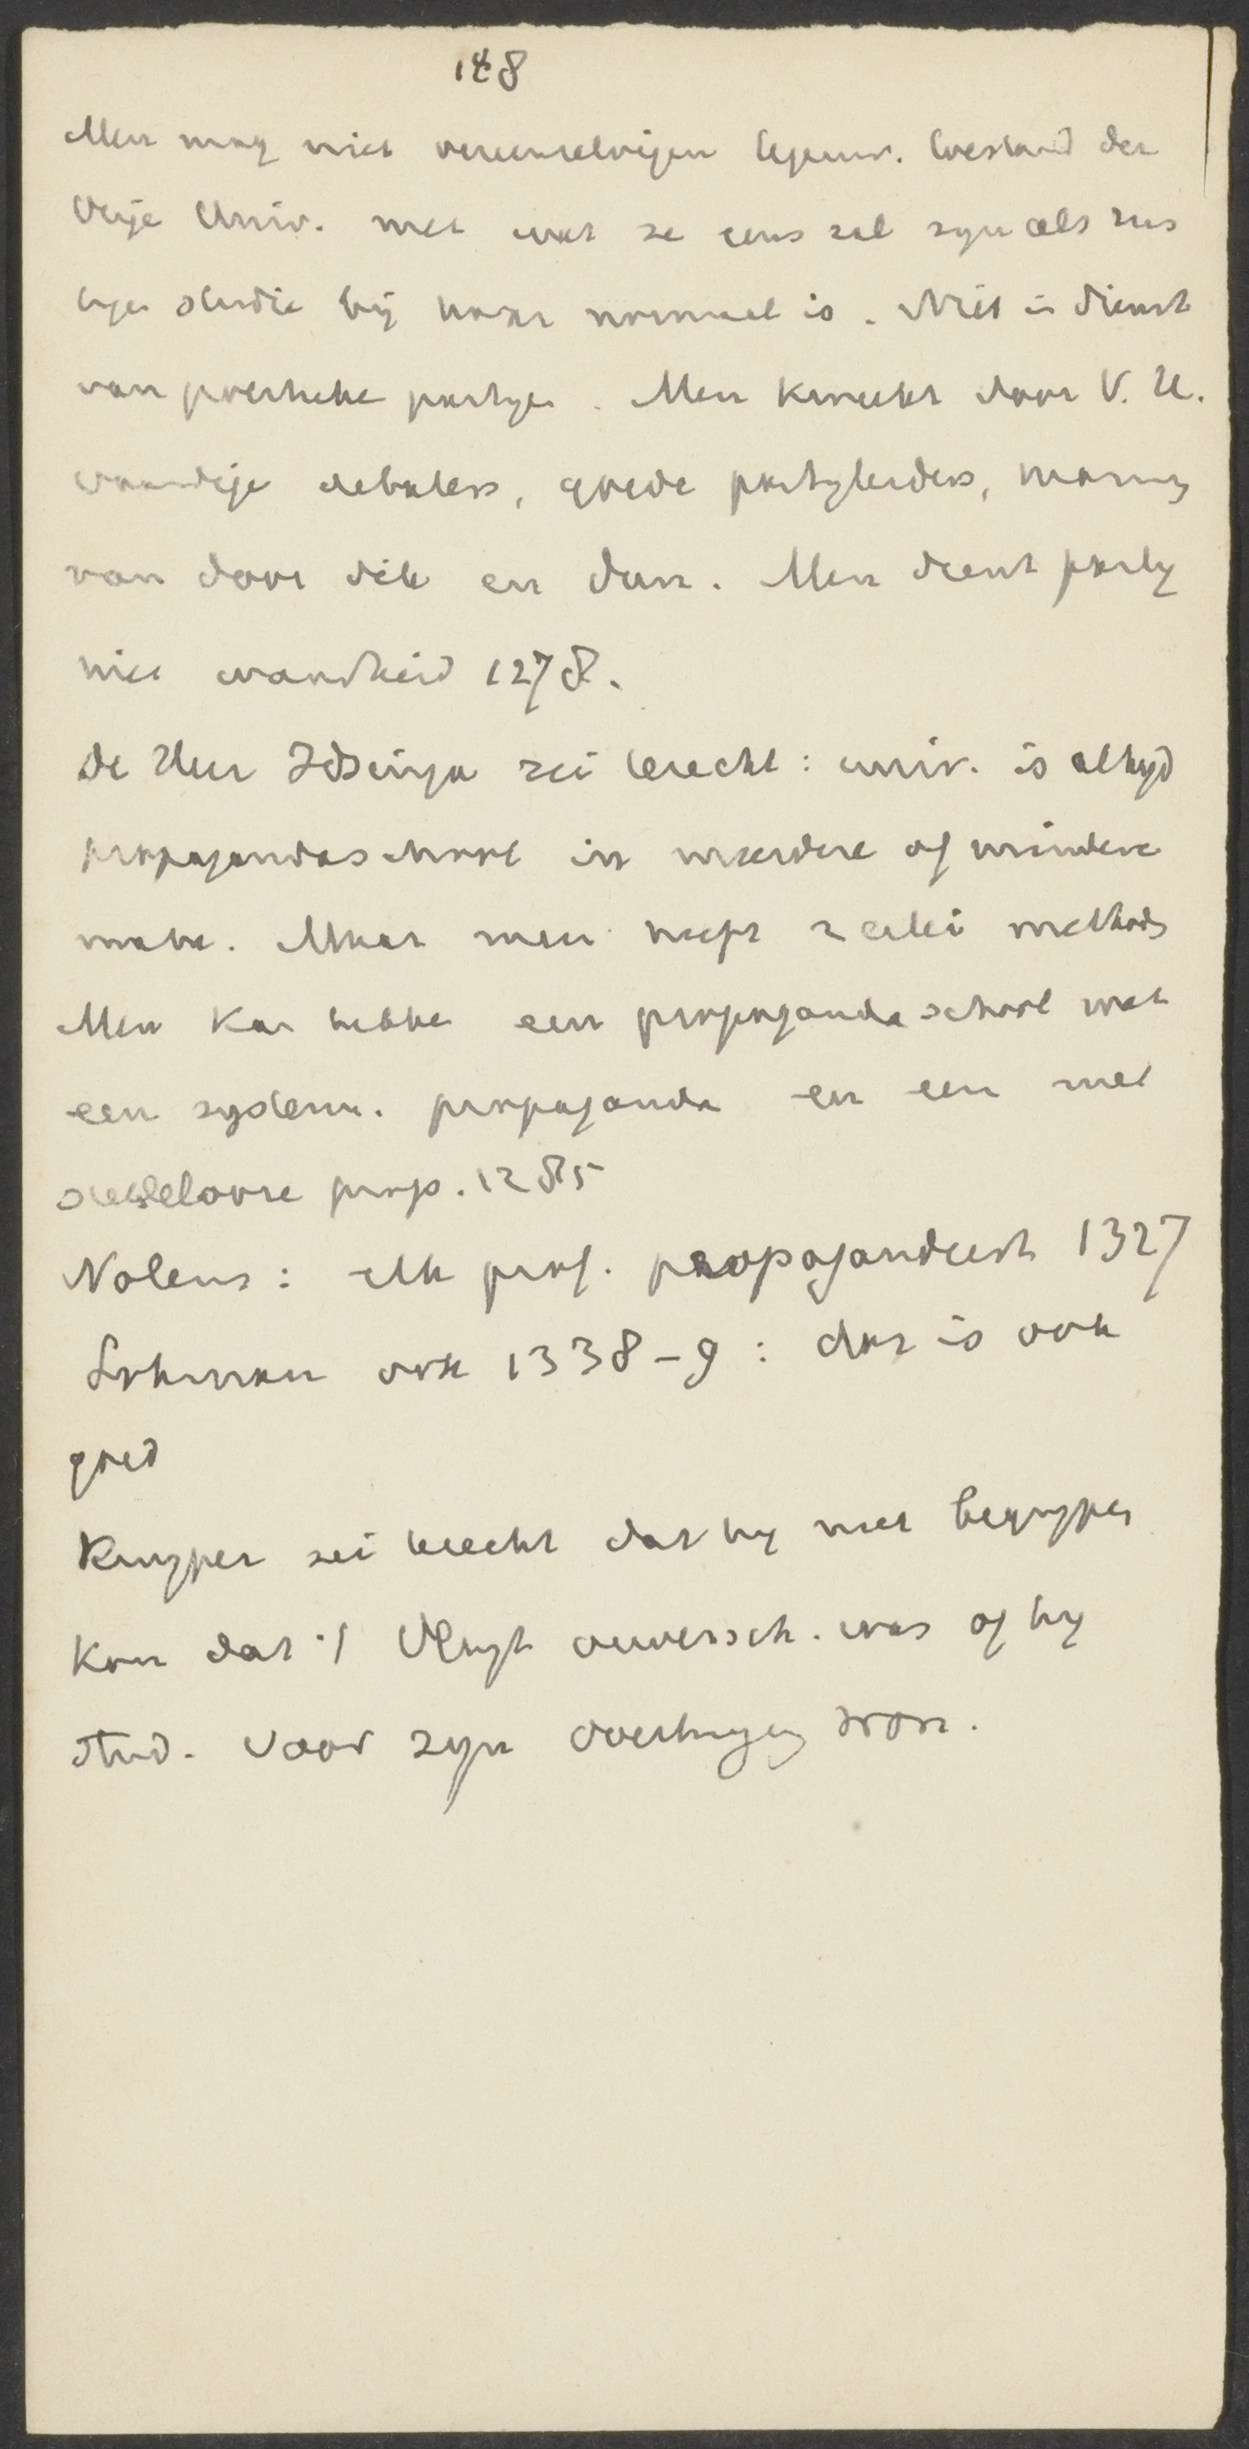 148
Men mag niet vereenzelvigen tegenw. toestand der
Vrije Univ. met wat ze eens zal zyn als rus
tige studie bij haar normaal is. Niet in dienst
van politieke partyen. Men kweekt door V. U.
vaardige debaters, goede partyleiders, mannen
van door dik en dun. Men dient party
niet waarheid 1278.
De Heer Idsinga zei terecht: univ. is altyd
propagandaschool in meerdere of mindere
mate. Maar men heeft 2 erlei methods
Men kan hebben een propagandaschool met
een system. propaganda en een met
stelselloore prop. 1285
Nolens: elk prof. propagandeert 1327
Lohman ook 1338-9: dat is ook
goed
Kuyper zei terecht dat hy niet begrypen
kon dat 't Vlugt onversch. was of hy
stud. voor zyn overtuiging won.